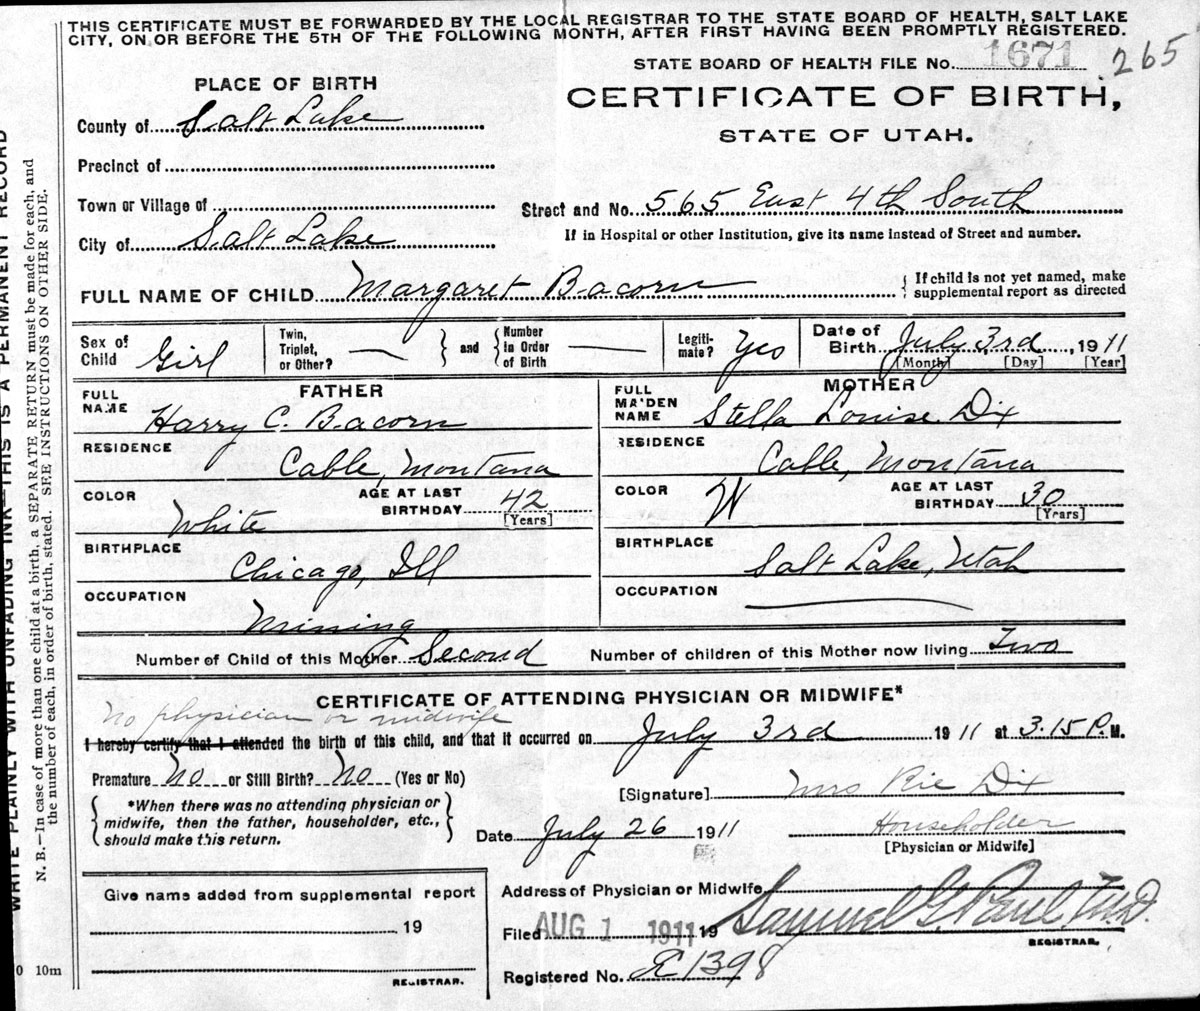 THIS CERTIFICATE MUST BE FORWARDED BY THE LOCAL REGISTRAR TO THE STATE BOARD OF HEALTH, SALT LAKE
CITY, ON OR BEFORE THE 5TH OF THE FOLLOWING MONTH, AFTER FIRST HAVING BEEN PROMPTLY REGISTERED.
STATE BOARD OF HEALTH FILE No. 1671 265
PLACE OF BIRTH
CERTIFICATE OF BIRTH,
STATE OF UTAH.
County of Salt Lake
Precinct of
Town or Village of
Street and No. 565 East 4th South
City of Salt Lake
If in Hospital or other Institution, give its name instead of Street and number.
FULL NAME OF CHILD Margaret Bacorn
{ If child is not yet named, make
supplemental report as directed
Sex of Child Girl
Twin, Triplet, or Other? —
and
Number in Order of Birth —
Legitimate? Yes
Date of Birth July 3rd, 1911
[Month] [Day] [Year]
FATHER
FULL NAME Harry C. Bacorn
RESIDENCE
Cable, Montana
COLOR White
AGE AT LAST BIRTHDAY 42
[Years]
BIRTHPLACE
Chicago, Ill
OCCUPATION
Mining
MOTHER
FULL MAIDEN NAME Stella Louise Dix
RESIDENCE
Cable, Montana
COLOR W
AGE AT LAST BIRTHDAY 30
[Years]
BIRTHPLACE
Salt Lake, Utah
OCCUPATION
Number of Child of this Mother Second
Number of children of this Mother now living Two
CERTIFICATE OF ATTENDING PHYSICIAN OR MIDWIFE*
No physician or midwife
I hereby certify that I attended the birth of this child, and that it occurred on July 3rd 1911 at 3.15 P.M.
Premature No or Still Birth? No (Yes or No)
[Signature] Mrs Rie Dix
*When there was no attending physician or
midwife, then the father, householder, etc.,
should make this return.
Date July 26 1911
Householder
[Physician or Midwife]
Give name added from supplemental report
19
REGISTRAR.
Address of Physician or Midwife
Filed AUG 1 1911 19 Samuel G. Paul, M.D.
REGISTRAR.
Registered No. 1398
WRITE PLAINLY WITH UNFADING INK—THIS IS A PERMANENT RECORD
N. B.—In case of more than one child at a birth, a SEPARATE RETURN must be made for each, and
the number of each, in order of birth, stated. SEE INSTRUCTIONS ON OTHER SIDE.
10m